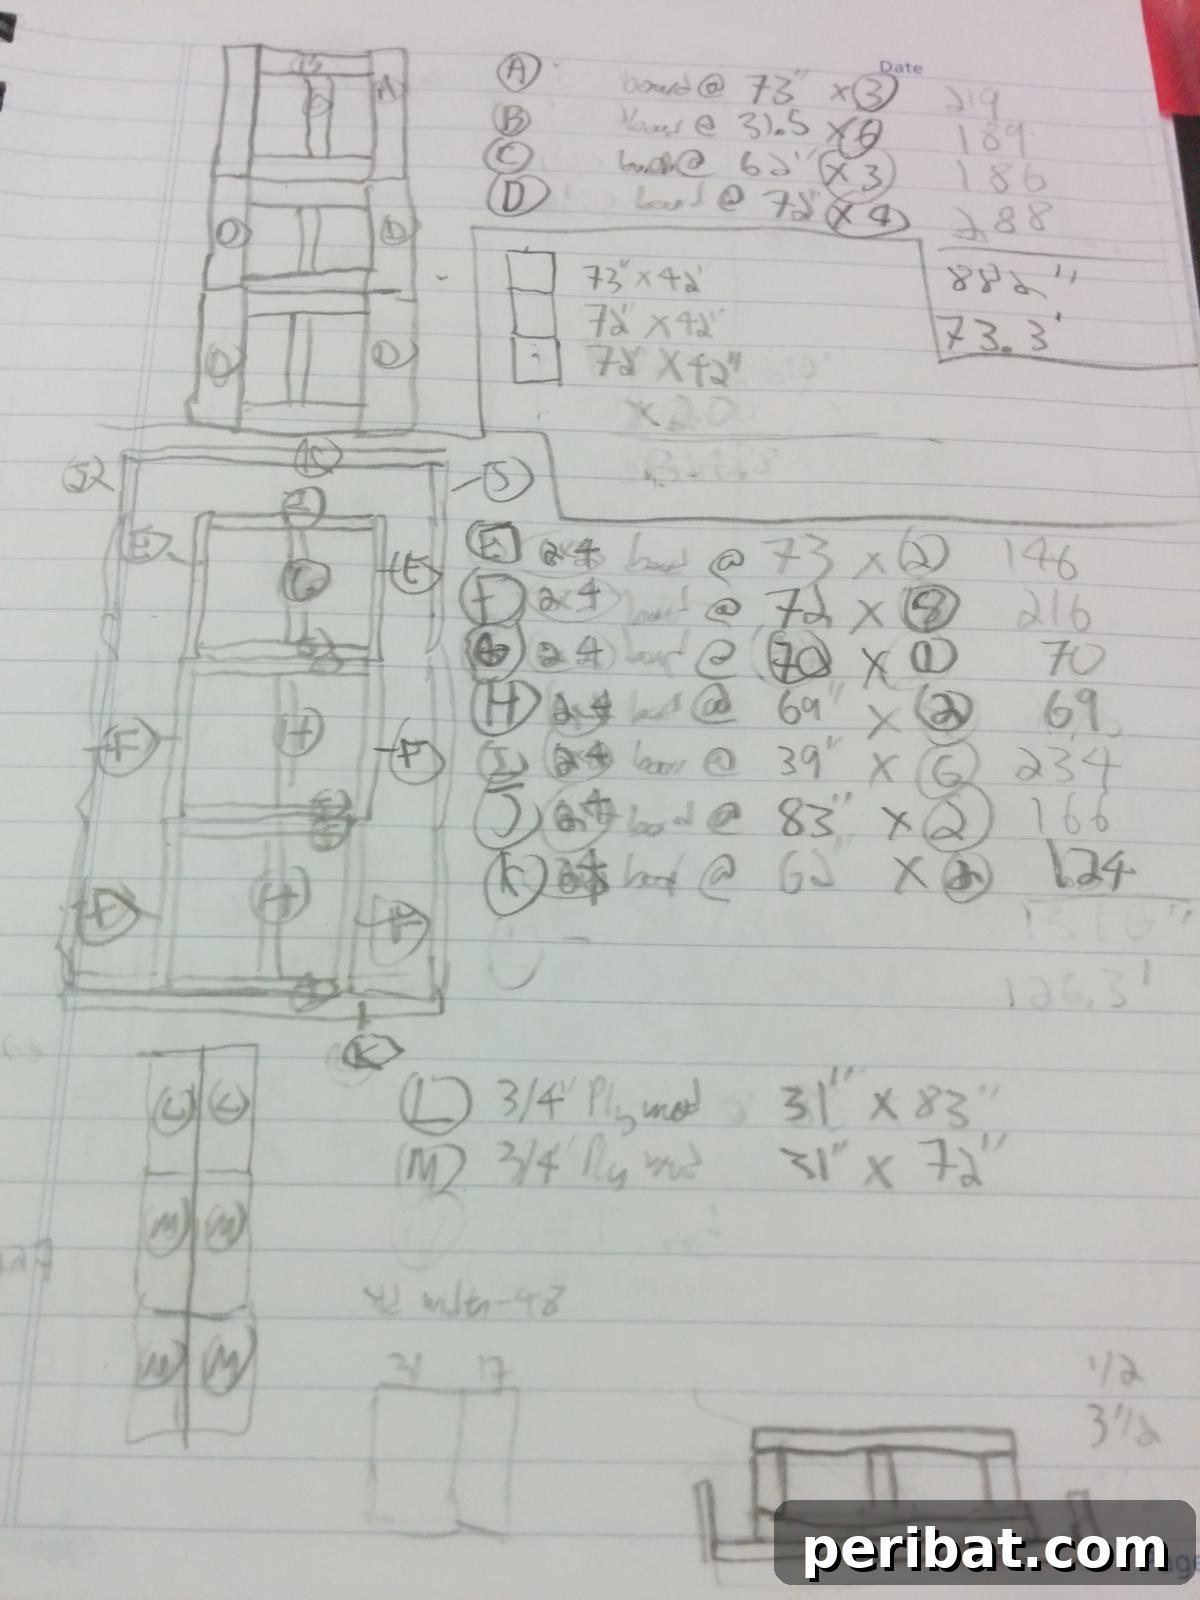 Date
A board @ 73" x 3 219
B board @ 31.5 x 6 189
C board @ 62" x 3 186
D board @ 72" x 4 288
882"
73.3'
73" x 42"
72" x 42"
72" x 42"
x 20
B A
D D
D D
J2 K J
E E
G
E 2x4 board @ 73 x 2 146
F 2x4 board @ 72 x 8 216
G 2x4 board @ 70 x 1 70
H 2x4 board @ 69" x 2 69
I 2x4 board @ 39" x 6 234
J 2x4 board @ 83" x 2 166
K 2x4 board @ 62" x 2 124
1516"
126.3'
F H F
F H F
K
L L
M M
M M
L 3/4" Plywood 31" x 83"
M 3/4" Plywood 31" x 72"
width-48
31 17
1/2
3 1/2
peribat.com